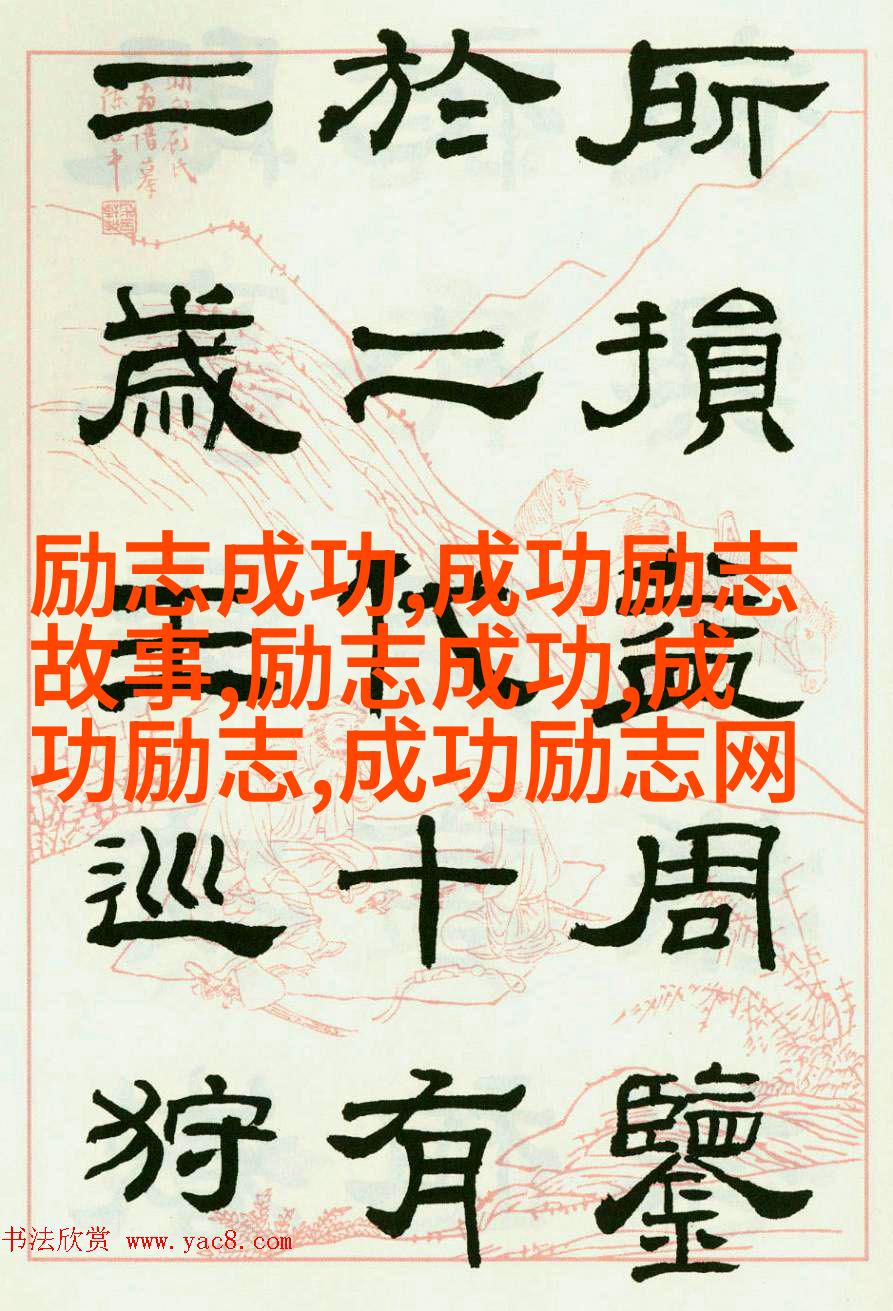 所損益周鑒
於二代十有
二歲王巡狩
励志成功,成功励志
故事,励志成功,成
功励志,成功励志网
书法欣赏 www.yac8.com